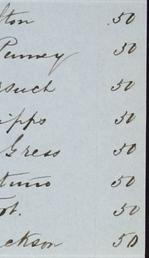 lton .50
Penney 50
such 50
ipps 50
Gress 50
50
ot. 50
ckson 50